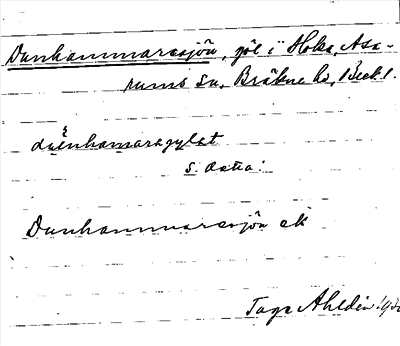 Dunhammaresjön, göl i Hoka, Asa-
rums sn, Bräkne hd, Blek l.
duenhamaragylet
s. osta:
Dunhammaresjön ek
Tage Ahldén 193